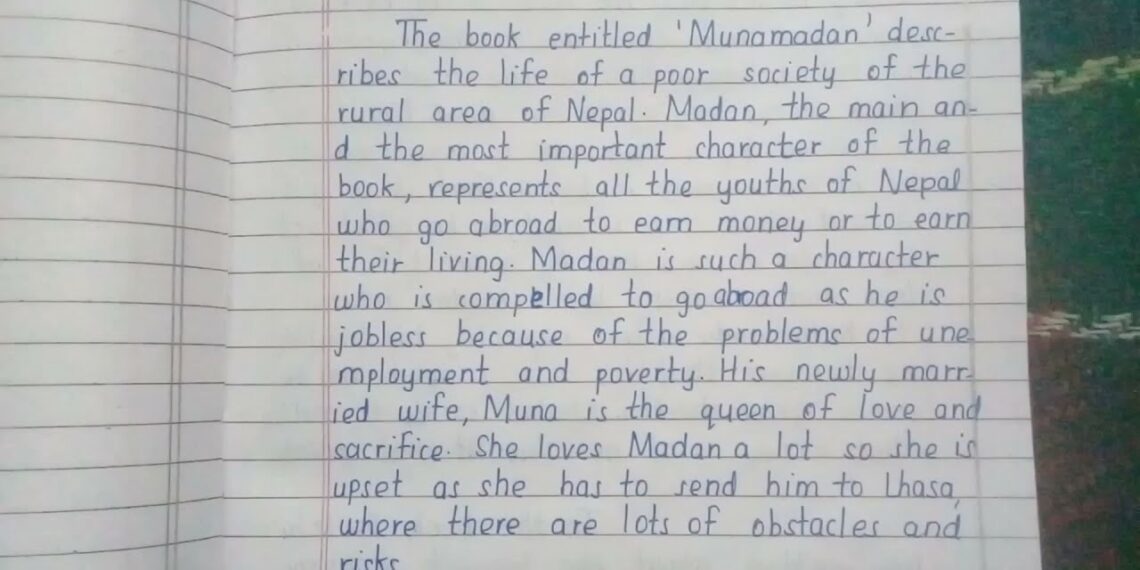 The book entitled 'Munamadan' desc-
ribes the life of a poor society of the
rural area of Nepal. Madan, the main an-
d the most important character of the
book, represents all the youths of Nepal
who go abroad to earn money or to earn
their living. Madan is such a character
who is compelled to go aboad as he is
jobless because of the problems of une
mployment and poverty. His newly marr-
ied wife, Muna is the queen of love and
sacrifice. She loves Madan a lot so she is
upset as she has to send him to Lhasa,
where there are lots of obstacles and
risks